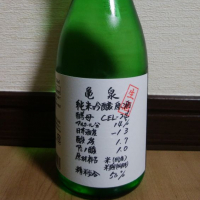 亀泉
生
純米吟醸原酒
酵母 CEL-24
アルコール分 14%
日本酒度
酸度 1.7
アミノ酸 1.0
原材料名 米(国産)
米麹(国産米)
精米歩合 50%